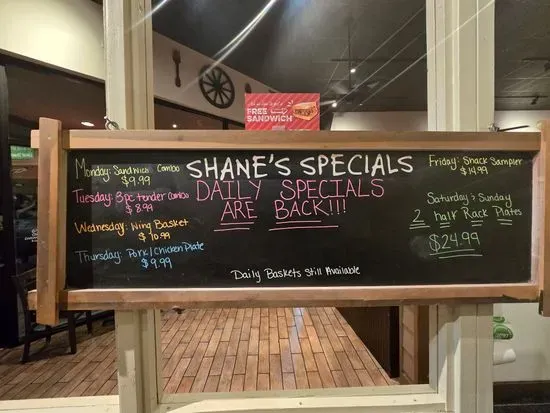 FREE
SANDWICH
SHANE'S SPECIALS
DAILY SPECIALS
ARE BACK!!!
Monday: Sandwich Combo
$9.99
Tuesday: 3pc tender Combo
$8.99
Wednesday: Wing Basket
$10.99
Thursday: Pork/Chicken Plate
$9.99
Friday: Shack Sampler
$14.99
Saturday & Sunday
2 half Rack Plates
$24.99
Daily Baskets Still Available